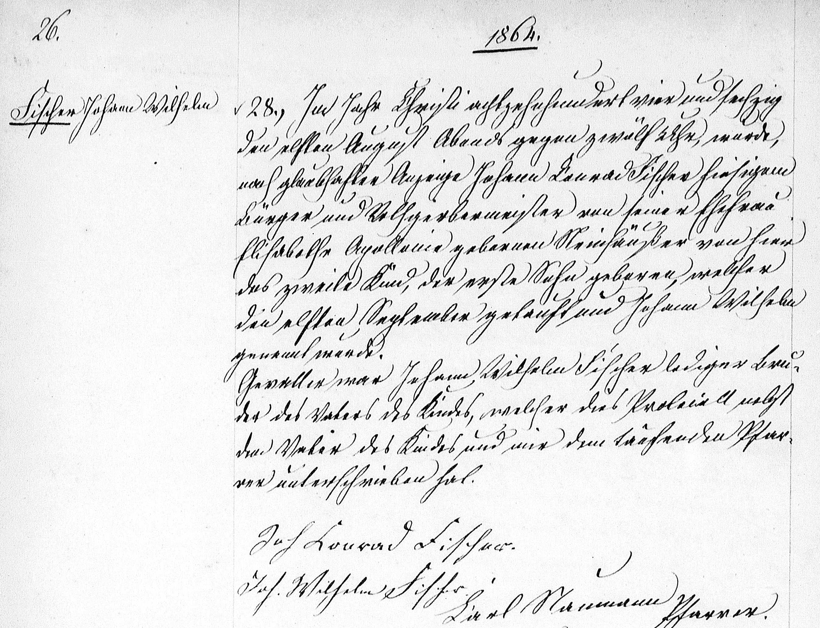 26.
1864.
Fischer Johann Wilhelm
28., Im Jahr Christi achtzehnhundert vier und sechzig
den elften August Abends gegen zwölf Uhr, wurde,
nach glaubhafter Anzeige Johann Conrad Fischer hiesigem
Bürger und Rothgerbermeister von seiner Ehefrau
Elisabethe Apollonie gebornen Steinhäußer von hier
das zweite Kind, der erste Sohn geboren, welcher
den elften September getauft und Johann Wilhelm
genannt wurde.
Gevatter war Johann Wilhelm Fischer lediger Bru-
der des Vaters des Kindes, welcher dies Protocoll nebst
dem Vater des Kindes und mir dem taufenden Pfar-
rer unterschrieben hat.
Joh Conrad Fischer.
Joh. Wilhelm Fischer
Karl Naumann Pfarrer.